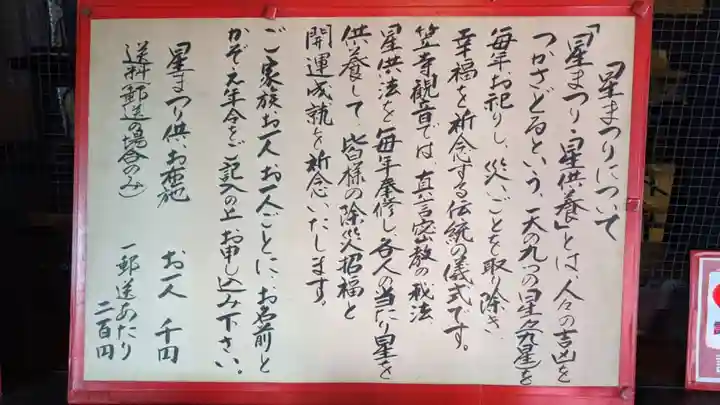 「星まつりについて
「星まつり・星供養」とは、人々の吉凶を
つかさどるという、天の九つの星を
毎年お祀りし、災いごとを取り除き、
幸福を祈念する伝統の儀式です。
笠寺観音では、真言密教の秘法、
星供法を毎年奉修し、各人の当たり星を
供養して、皆様の除災招福と
開運成就を祈念いたします。
ご家族お一人お一人ごとに、お名前と
かぞえ年令をご記入の上お申し込み下さい。
星まつり供、お布施 お一人 千円
送料(郵送の場合のみ) 一郵送あたり
二百円